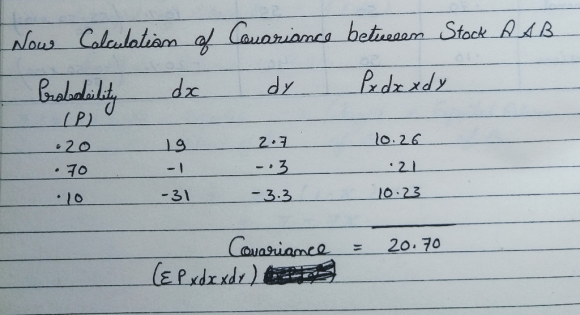 Now Calculation of Covariance between Stock A & B
Probability dx dy Pxdxxdy
(P)
.20 19 2.7 10.26
.70 -1 -.3 .21
.10 -31 -3.3 10.23
Covariance = 20.70
(ΣPxdxxdy)